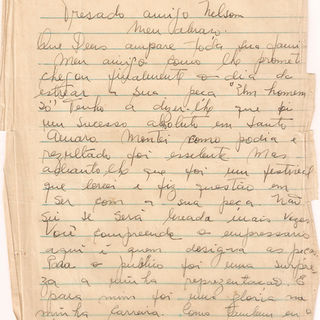 Presado amigo Nelson
Meu abraço.
Que Deus ampare toda sua fami
Meu amigo como lhe prometi
chegou finalmente o dia de
estrear a sua peça "Um homem
só" Tenho á dizer-lhe que foi
um sucesso absoluto em Santo
Amaro Montei como podia e
resultado foi esselente Mas
adianto-lhe que foi um festival
que levei e fiz questão em
ser com a sua peça Não
sei se será levada mais vezes
Você compreende o empressario
aqui é quem designa as peças
Para o publico foi uma surpre
za a minha reprezentação. E
para mim foi uma gloria na
minha carreira. Como tambem eu o